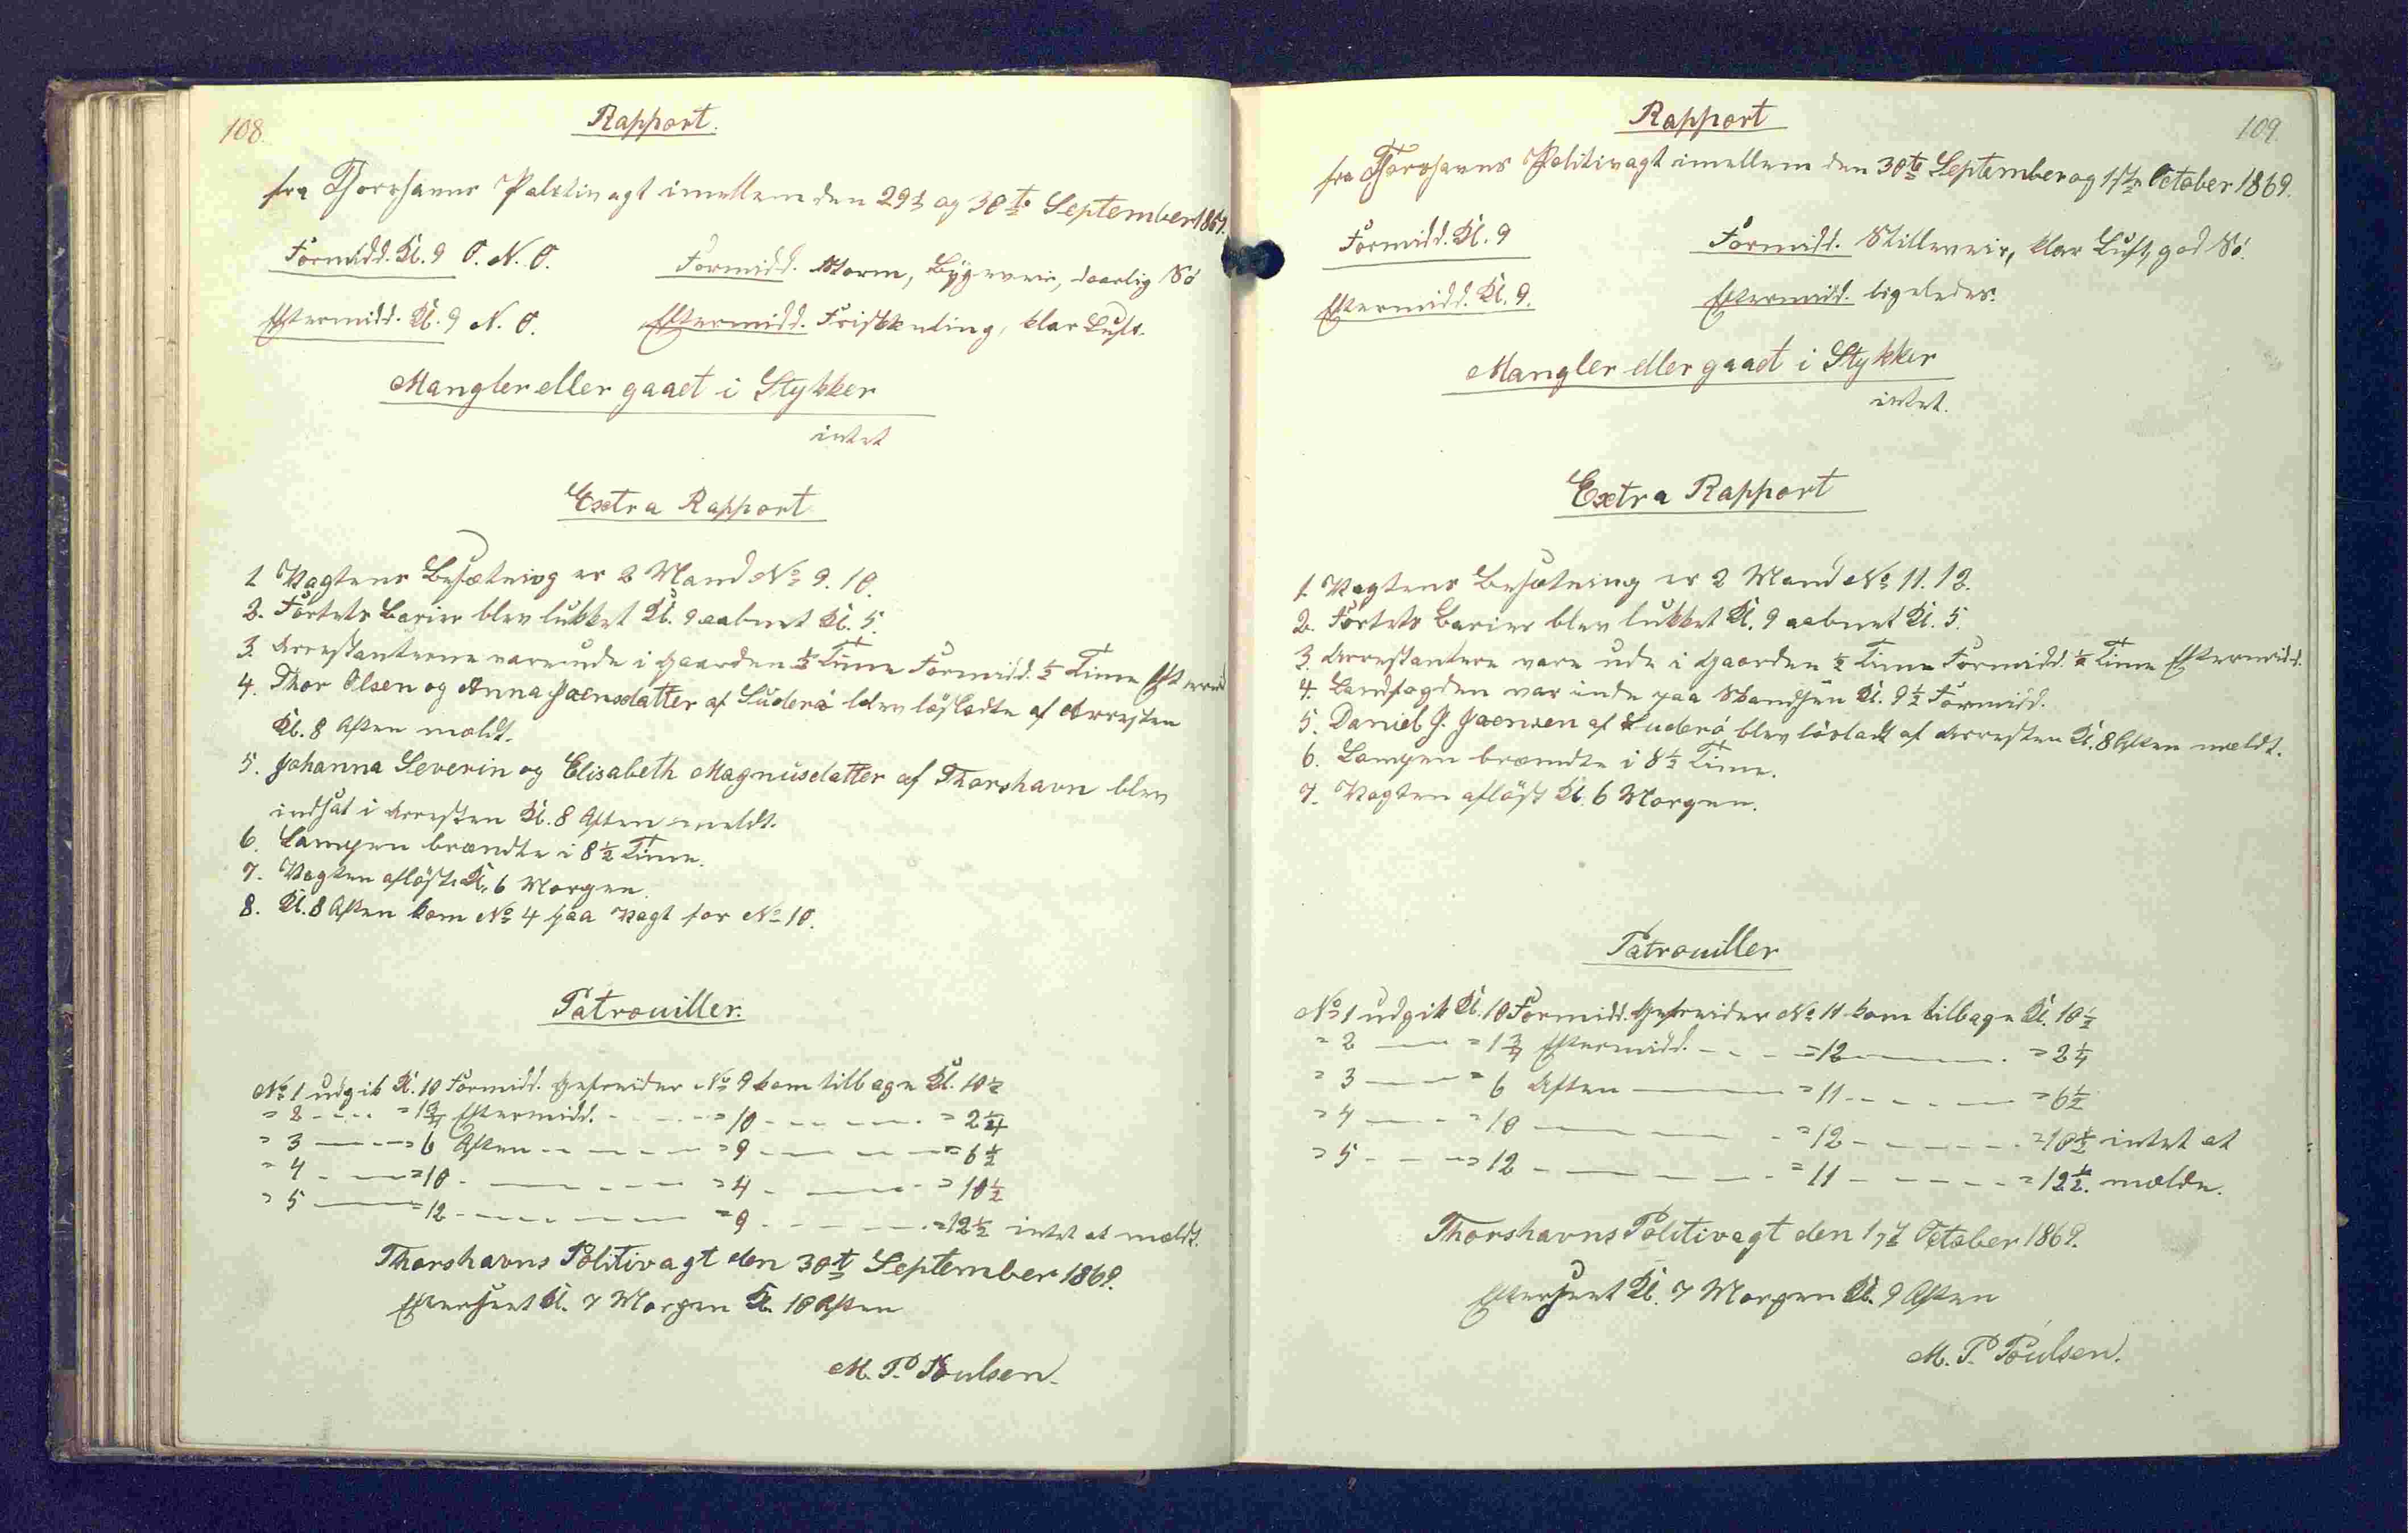 108.
Rapport.
fra Thorshavns Politivagt imellem den 29de og 30te September 1869.
Formidd. Kl. 9 O. N. O. Formidd. Storm, Bygeveir, daarlig Sö
Eftermidd. Kl. 9 N. O. Eftermidd. Friskkuling, klar Luft.
Mangler eller gaaet i Stykker
intet
Extra Rapport
1 Vagtens Besætning er 2 Mand No 9. 10.
2. Fortets Barier blev lukket Kl. 9 aabnet Kl. 5.
3. Arrestanterne vare ude i Gaarden ½ Time Formidd. ½ Time Eftermidd
4. Thor Olsen og Anna Joensdatter af Suderö blev lösladte af Arresten
Kl. 8 Aften meldt.
5. Johanna Severin og Elisabeth Magnusdatter af Thorshavn blev
indsat i Arresten Kl. 8 Aften meldt.
6. Lampen brændte i 8½ Time.
7. Vagten aflöst Kl. 6 Morgen.
8. Kl. 8 Aften kom No 4 paa Vagt for No 10.
Patrouiller.
No 1 udgik Kl. 10 Formidd. Gefreider No 9 kom tilbage Kl. 10½
= 2 - - - = 1¾ Eftermidd. - - - = 10 - - - = 2¼
= 3 - - - = 6 Aften - - - = 9 - - - = 6½
= 4 - - - = 10 - - - = 4 - - - = 10½
= 5 - - - = 12 - - - = 9 - - - = 12½ intet at meldt.
Thorshavns Politivagt den 30te September 1869.
Efterseet Kl. 7 Morgen Kl. 10 Aften
M. P. Poulsen.
109.
Rapport
fra Thorshavns Politivagt imellem den 30te September og 1ste October 1869.
Formidd. Kl. 9 Formidd. Stilleveir, klar Luft, god Sö.
Eftermidd. Kl. 9. Eftermidd. ligeledes.
Mangler eller gaaet i Stykker
intet.
Extra Rapport
1. Vagtens Besætning er 2 Mand No 11. 12.
2. Fortets Barier blev lukket Kl. 9 aabnet Kl. 5.
3. Arrestantere vare ude i Gaarden ½ Time Formidd. ½ Time Eftermidd.
4. Landfogden var inde paa Skandsen Kl. 9½ Formidd.
5. Daniel J. Joensen af Suderö blev lösladt af Arresten Kl. 8 Aften meldt.
6. Lampen brændte i 8½ Time.
7. Vagten aflöst Kl. 6 Morgen.
Patrouiller
No 1 udgik Kl. 10 Formidd. Gefreider No 11 kom tilbage Kl. 10½
= 2 - - - = 1¾ Eftermidd. - - - = 12 - - - = 2¼
= 3 - - - = 6 Aften - - - = 11 - - - = 6½
= 4 - - - = 10 - - - = 12 - - - = 10½ intet at
= 5 - - - = 12 - - - = 11 - - - = 12½. melde.
Thorshavns Politivagt den 1ste October 1869.
Efterseet Kl. 7 Morgen Kl. 9 Aften
M. P. Poulsen.